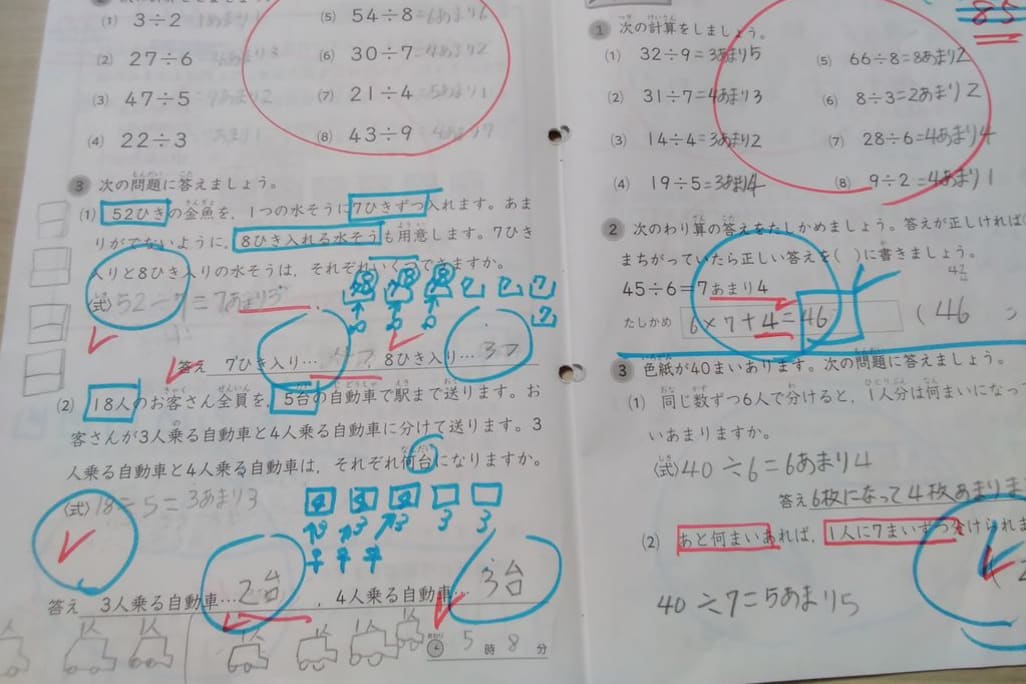 (1) 3÷2
(2) 27÷6
(3) 47÷5
(4) 22÷3
(5) 54÷8 =6あまり6
(6) 30÷7 =4あまり2
(7) 21÷4 =5あまり1
(8) 43÷9 =4あまり7
3 次の問題に答えましょう。
(1) 52ひきの金魚を、1つの水そうに7ひきずつ入れます。あま
りがでないように、8ひき入れる水そうも用意します。7ひき
入りと8ひき入りの水そうは、それぞれいくつできますか。
(式) 52÷7=7あまり3
答え 7ひき入り… 4つ, 8ひき入り… 3つ
(2) 18人のお客さん全員を、5台の自動車で駅まで送ります。お
客さんが3人乗る自動車と4人乗る自動車に分けて送ります。3
人乗る自動車と4人乗る自動車は、それぞれ何台になりますか。
(式) 18÷5=3あまり3
答え 3人乗る自動車…2台, 4人乗る自動車…3台
5時8分
85
1 次の計算をしましょう。
(1) 32÷9=3あまり5
(2) 31÷7=4あまり3
(3) 14÷4=3あまり2
(4) 19÷5=3あまり4
(5) 66÷8=8あまり2
(6) 8÷3=2あまり2
(7) 28÷6=4あまり4
(8) 9÷2=4あまり1
2 次のわり算の答えをたしかめましょう。答えが正しければ
まちがっていたら正しい答えを( )に書きましょう。
45÷6=7あまり4
42
たしかめ 6×7+4=46 (46
3 色紙が40まいあります。次の問題に答えましょう。
(1) 同じ数ずつ6人で分けると、1人分は何まいになっ
いあまりますか。
(式) 40÷6=6あまり4
答え 6枚になって4枚あまりま
(2) あと何まいあれば、1人に7まいずつ分けられま
40÷7=5あまり5